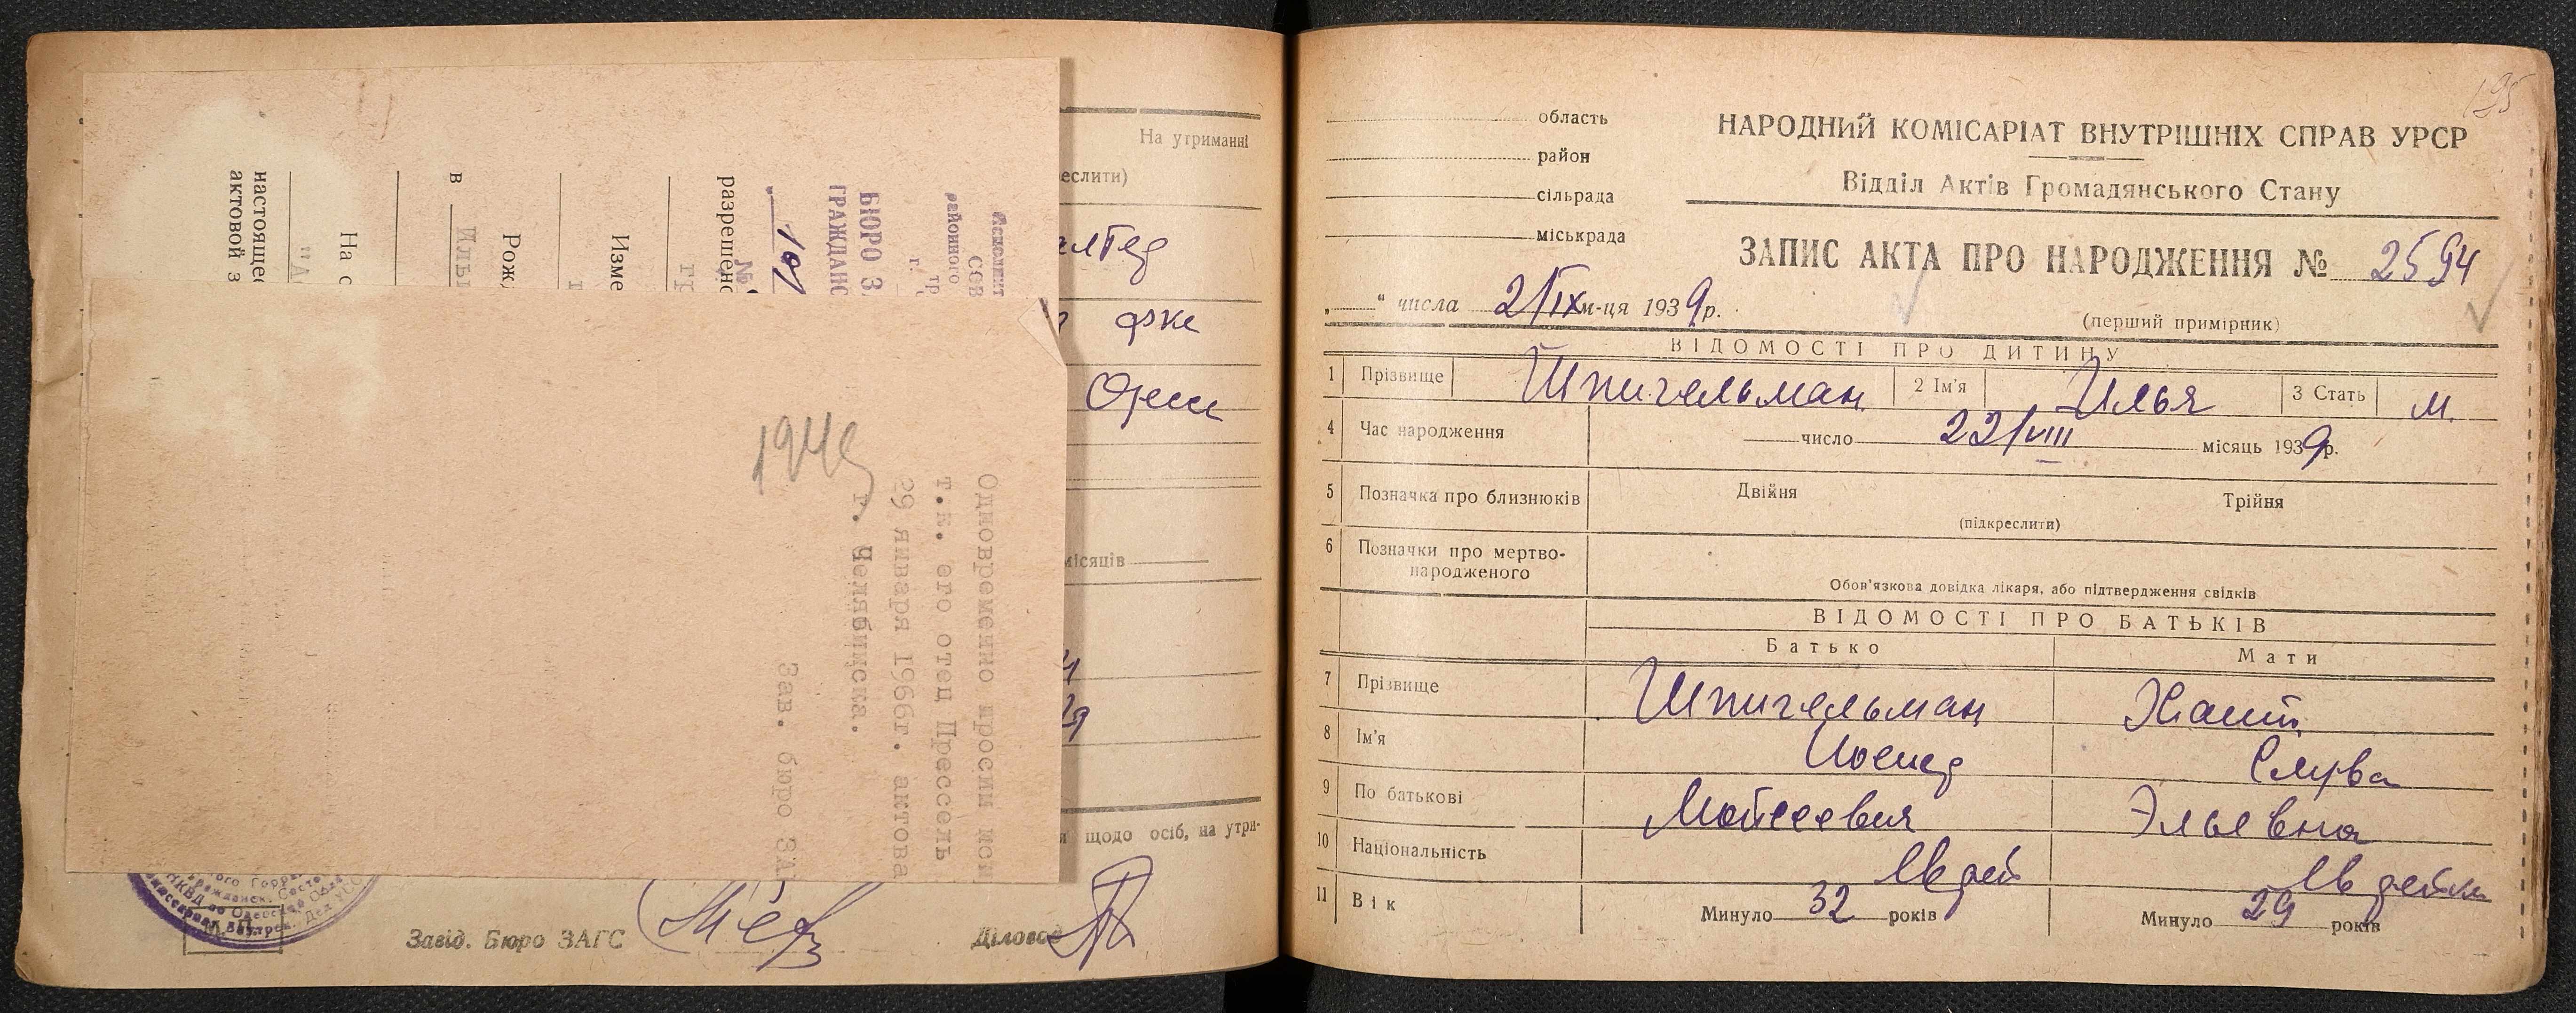 На утриманні
еслити)
фже
місяців
щодо осіб, на утри-
Завід. Бюро ЗАГС
Діловод
М. П.
настоящее
актовой з
На с
в
Рож
Изме
разрешен
№
101
БЮРО З
ГРАЖДАНС
районного
СОВ
1948
Одновременно просим ис
т.к. его отец Прессель
29 января 1966г. актова
г. Челябинска.
Зав. бюро ЗА
195
область
район
сільрада
міськрада
НАРОДНИЙ КОМІСАРІАТ ВНУТРІШНІХ СПРАВ УРСР
Відділ Актів Громадянського Стану
ЗАПИС АКТА ПРО НАРОДЖЕННЯ № 2594
„ “ числа 2/IX м-ця 1939р.
(перший примірник)
ВІДОМОСТІ ПРО ДИТИНУ
1 Прізвище Шпигельман 2 Ім'я Илья 3 Стать м.
4 Час народження число 22/VIII місяць 1939р.
5 Позначка про близнюків Двійня Трійня
(підкреслити)
6 Позначки про мертво-
народженого
Обов'язкова довідка лікаря, або підтвердження свідків
ВІДОМОСТІ ПРО БАТЬКІВ
Батько Мати
7 Прізвище Шпигельман
8 Ім'я Иосиф
9 По батькові Мойсеевич Эльевна
10 Національність Еврей Еврейка
11 Вік Минуло 32 років Минуло 29 років